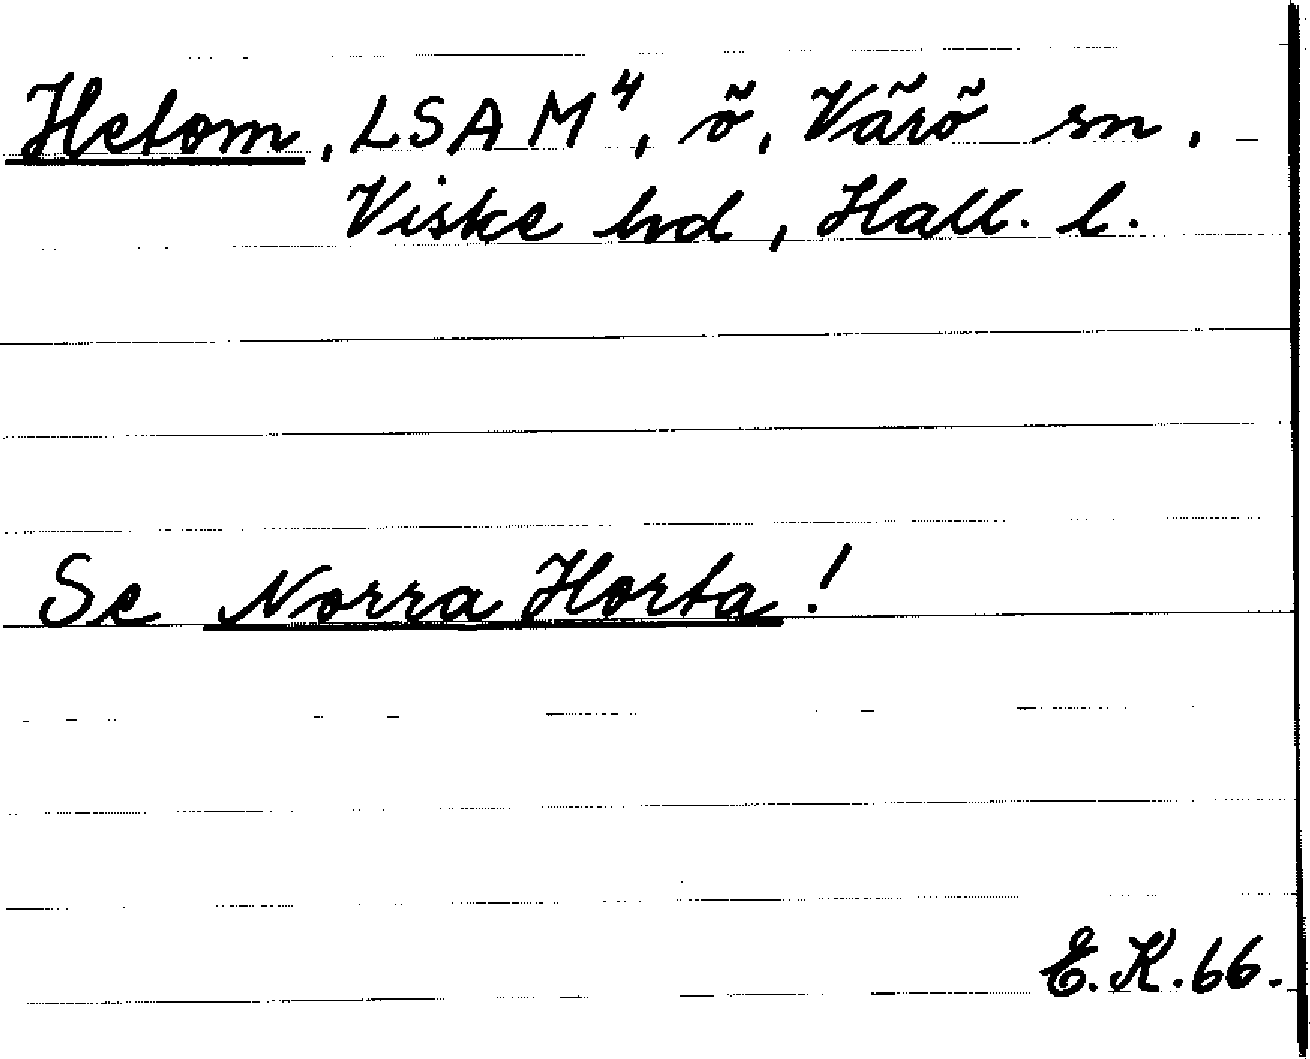 Hetom, LSA M⁴, ö, Värö sn,
Viske hd, Hall. l.
Se Norra Horta!
E.K.66.